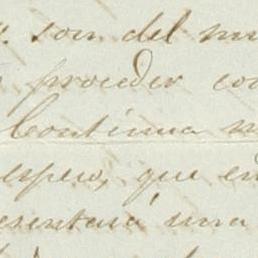 son del
proceder
Continua
espero, que en
esentará una